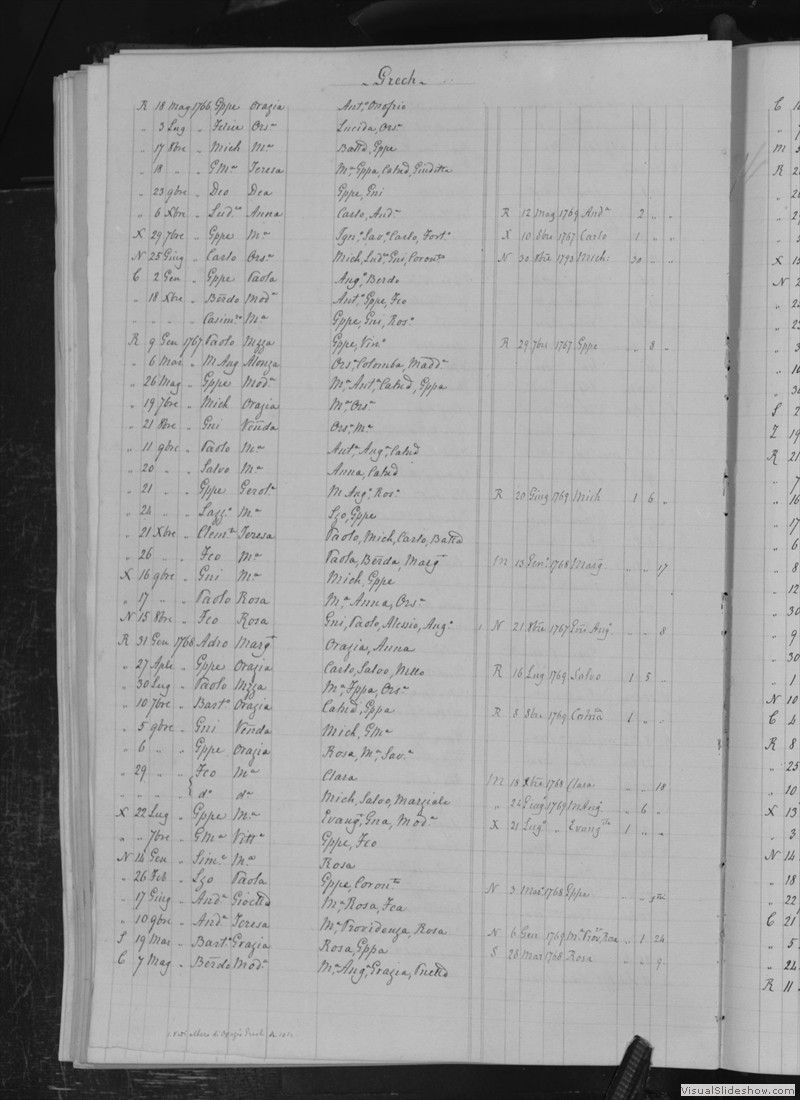 Grech
R 18 Mag 1766 Gppe Orazia Ant.a Onofrio
" 3 Lug " Felice Ors.a Lucida, Ors.a
" 17 8bre " Mich M.a Batta, Gppe
" 18 " " GM.a Teresa M.a Gppa, Calud, Giuditta
" 23 9bre " Deo Dea Gppe, Gni
" 6 Xbre " Lud.co Anna Carlo, And.a R 12 Mag 1769 And.a 2 " "
X 29 7bre " Gppe M.a Ign.o Sav.o Carlo, Fort.a X 10 8bre 1767 Carlo 1 " "
N 25 Giug " Carlo Ors.a Mich, Lud.a Gni, Coron.a N 30 8bre 1793 Mich: 30 - -
C 2 Gen " Gppe Paola Ang.a Berdo
" 18 Xbre " Berdo Mod.a Ant.a Gppe, Fco
" " " Casim.o M.a Gppe, Gni, Ros.a
R 9 Gen 1767 Paolo Mzza Gppe, Vinc.a R 29 7bre 1767 Gppe " 8 "
" 6 Mar " M Ang Alonza Ors.a Colomba, Madd.a
" 26 Mag " Gppe Mod.a M.a Ant.a Calud, Gppa
" 19 7bre " Mich Orazia M.a Ors.a
" 21 8bre " Gni Vnnda Ors.a M.a
" 11 9bre " Paolo M.a Ant.a Ang.a Calud
" 20 " " Salvo M.a Anna, Calud
" 21 " " Gppe Gerol.a M Ang.o Ros.a R 20 Giug 1769 Mich 1 6 "
" 24 " " Lazz.o M.a Lzo, Gppe
" 21 Xbre " Clem.te Teresa Paolo, Mich, Carlo, Batta
" 26 " " Fco M.a Paola, Berda, Marg.ta M 13 Gen.o 1768 Marg " " 17
X 16 9bre " Gni M.a Mich, Gppe
" 17 " " Paolo Rosa M.a Anna, Ors.a
N 15 8bre " Fco Rosa Gni, Paolo, Alessio, Ang.a N 21 8bre 1767 Ang.a " " 8
R 31 Gen 1768 Adro Marg.ta Orazia, Anna
" 27 Aple " Gppe Orazia Carlo, Salvo, Netto R 16 Lug 1769 Salvo 1 5 "
" 30 Lug " Paolo Mzza M.a Fppa, Ors.a
" 10 7bre " Bart.o Orazia Calud, Gppa R 8 8bre 1769 1 " "
" 5 9bre " Gni Vnnda Mich, GM.a
" 6 " " Gppe Orazia Rosa, M.a Sav.a
" 29 " " Fco M.a Clara M 18 Xbre 1768 Clara " " 18
" " " " d.o d.a Mich, Salvo, Marziale " 24 Giug 1769 M Ang " 6 "
X 22 Lug " Gppe M.a Evang.ta Gna, Mod.a X 21 Lug " Evang.ta 1 " "
" " 7bre " GM.a Vitt.a Gppe, Fco
N 14 Gen " Sim.e M.a Rosa
" 26 Feb " Lzo Paola Gppe, Coron.to N 3 Mar 1768 Gppe
" 17 Giug " And.a Giocttd M.a Rosa, Fca
" 10 9bre " And.a Teresa M.a Providenza, Rosa N 6 Gen 1769 M.a Prov, Rosa " 1 24
S 19 Mar " Bart.o Grazia Rosa, Gppa S 28 Mar 1768 Rosa " " 9
C 7 Mag " Berdo Mod.a M.a Ang.a Grazia,
VisualSlideshow.com